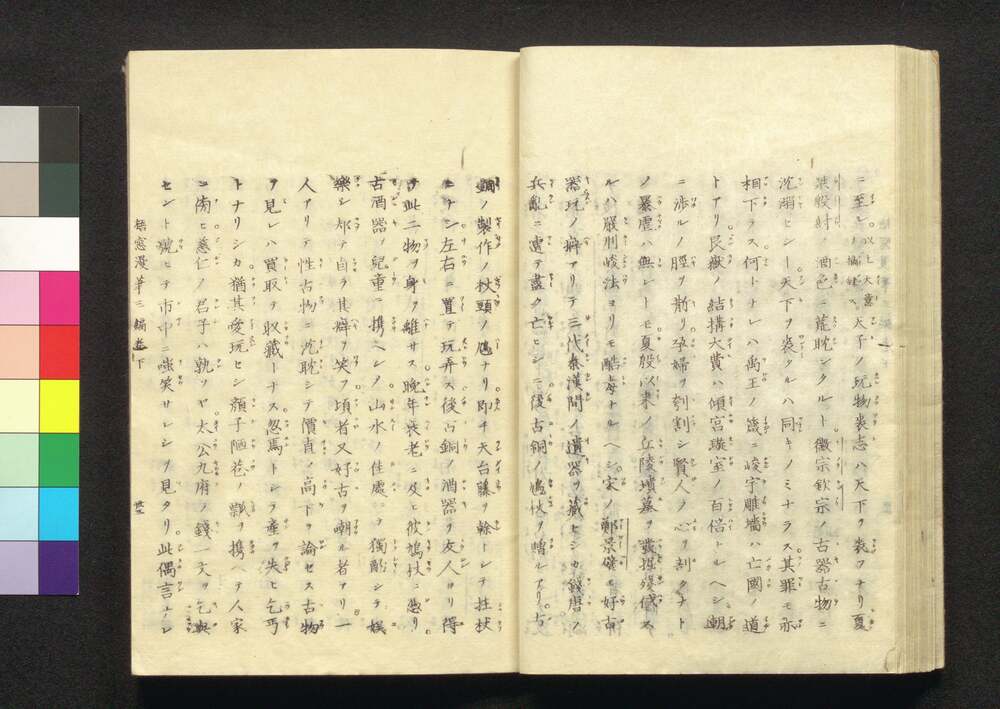 ニ至ル。以上大意ノ摘ム。天子ノ玩物喪志ハ天下ヲ喪フナリ夏
桀殷紂ノ酒色ニ荒耽シタルト徽宗欽宗ノ古器古物ニ
沈溺セシト天下ヲ喪タルハ同キノミナラス其罪モ亦
相下ラス何トナレハ禹王ノ箴ニ峻宇雕墻ハ亡國ノ道
トアリ艮嶽ノ結構大費ハ傾宮璇室ノ百倍トルヘシ朝
ニ渉ルノ脛ヲ斮リ孕婦ヲ刳割シ賢人ノ心ヲ剖クナト
ノ暴虐ハ無シトモ夏殷以来ノ丘陵墳墓ヲ發掘殘傷ス
ルハ嚴刑峻法ヨリモ酷毒トルヘシ宋ノ鄭景健モ好古
器玩ノ癖アリテ三代秦漢間ノ遺器ヲ藏セシカ錢唐ノ
兵亂ニ遭テ盡ク亡セシニ後古銅ノ鳩杖ヲ贈ルアリ古
銅ノ製作ノ杖頭ノ鳩ナリ即チ天台藤ヲ榦トシテ拄杖
ニナシ左右ニ置テ玩弄ス後古銅ノ酒器ヲ友人ヨリ得
テ此二物ヲ身ヲ離サス晩年衰老ニ及ヒ彼鳩杖ニ憑リ
古酒器ノ兒童ニ携ヘシノ山水ノ佳處ニテ獨酌シテ娯
樂シ却テ自ラ其癖ヲ笑フ頃者又好古ヲ嘲ル者アリ一
人アリテ性古物ニ沈耽シテ價直ノ高下ヲ論セス古物
ヲ見レハ買取テ収藏トナス忽焉トシテ産ヲ失ヒ乞丐
トナリシカ猶其愛玩セシ顔子陋巷ノ瓢ヲ携ヘテ人家
ニ傍ヒ慈仁ノ君子ハ孰ソヤ太公九府ノ錢一文ヲ乞與
セント號ヒテ市中ニ嗤笑サレシヲ見タリ此偶言ナレ
漫筆三編巻下